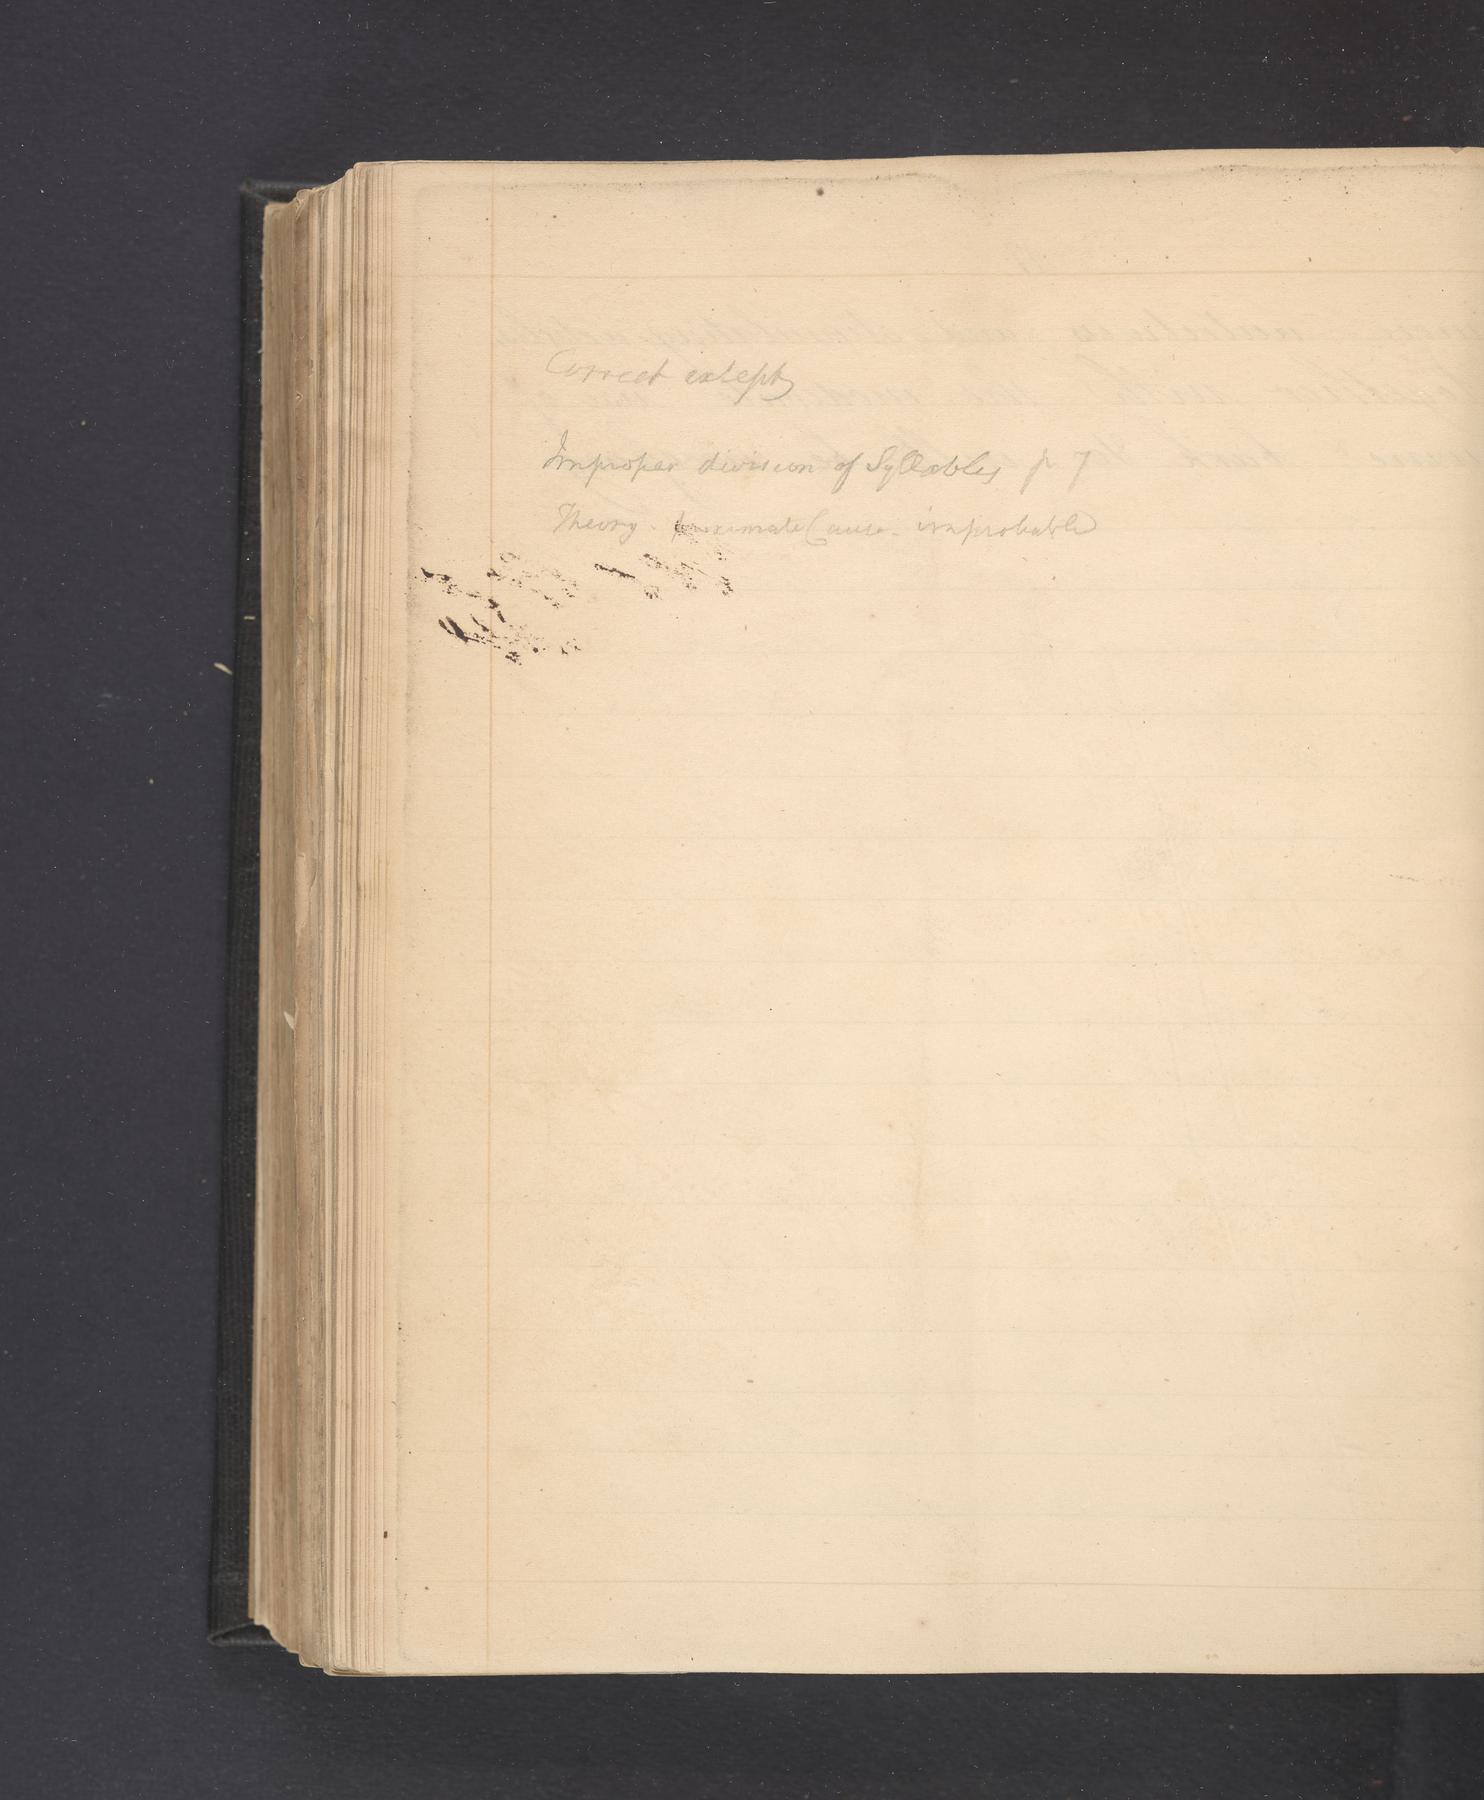 Correct except
Improper division of Syllables p 7
Theory. proximate Cause. improbable